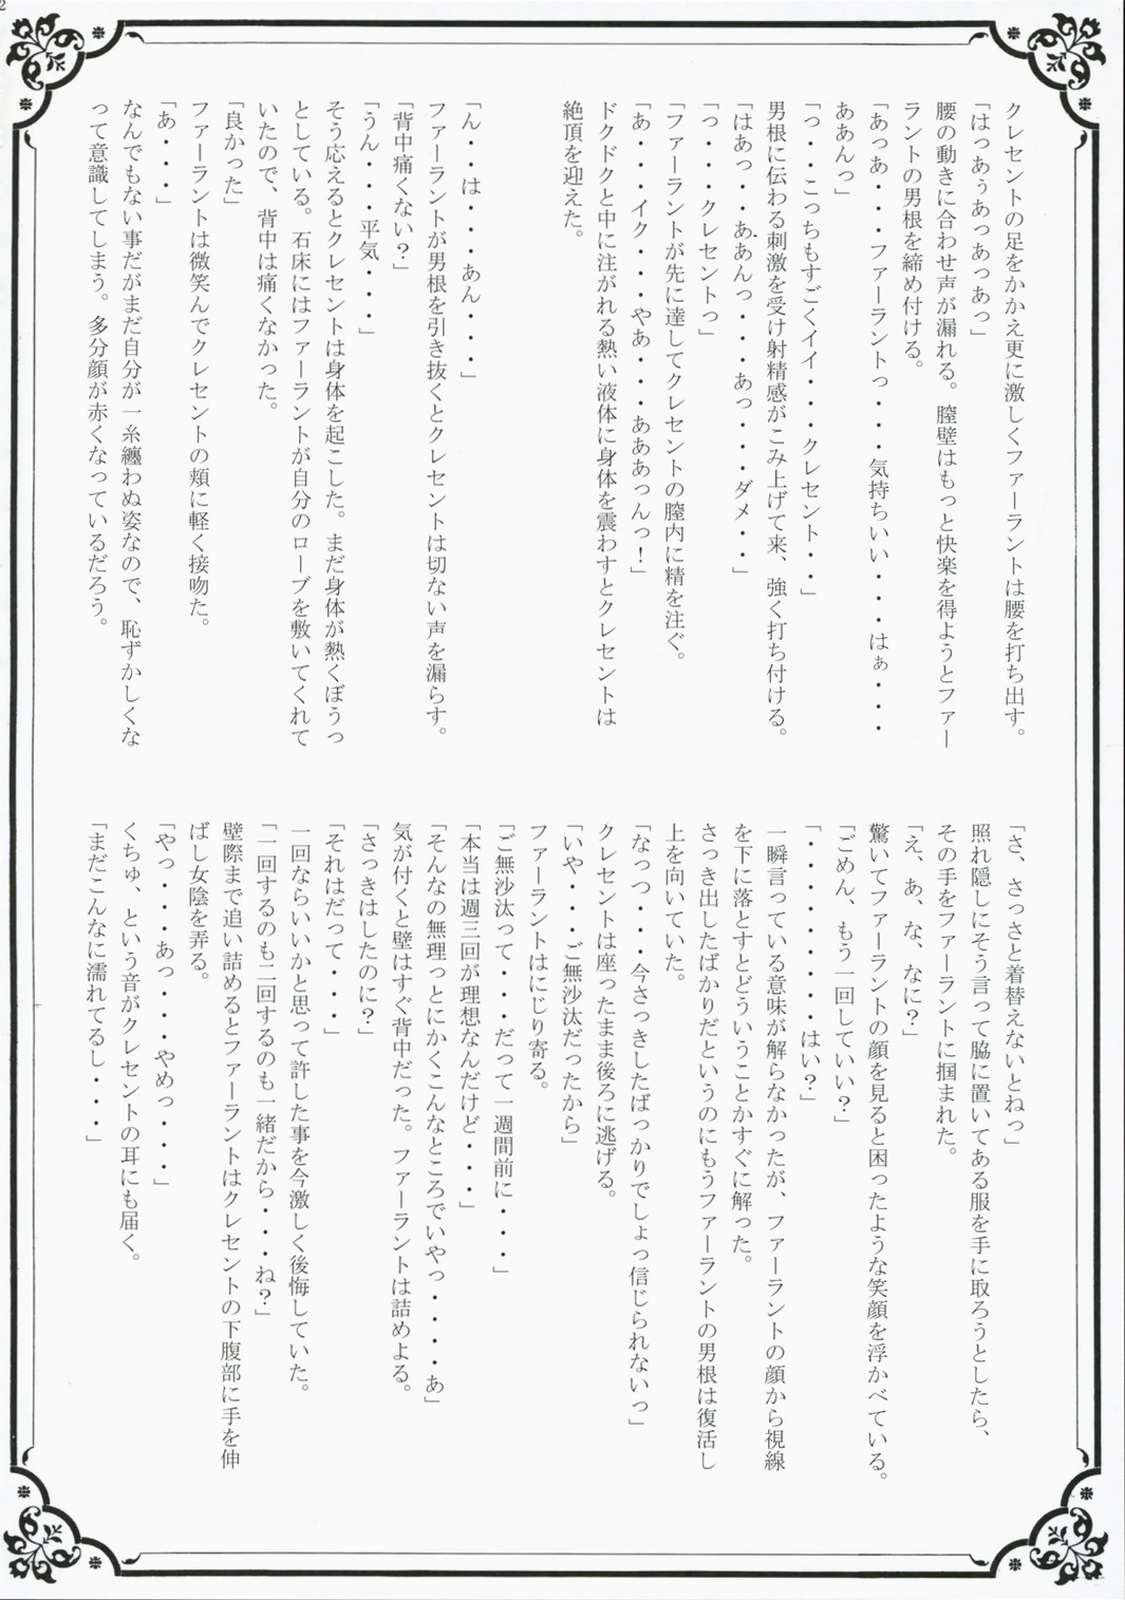 2
クレセントの足をかかえ更に激しくファーラントは腰を打ち出す。
「はっあぅあっあっあっ」
腰の動きに合わせ声が漏れる。膣壁はもっと快楽を得ようとファー
ラントの男根を締め付ける。
「あっあ・・・ファーラントっ・・・・気持ちいい・・・はぁ・・・
ああんっ」
「っ・・・こっちもすごくイイ・・・クレセント・・」
男根に伝わる刺激を受け射精感がこみ上げて来、強く打ち付ける。
「はあっ・・ああんっ・・・・あっ・・・・ダメ・・」
「っ・・・・クレセントっ」
「ファーラントが先に達してクレセントの膣内に精を注ぐ。
「あ・・・・イク・・・・やあ・・・あああっんっ！」
ドクドクと中に注がれる熱い液体に身体を震わすとクレセントは
絶頂を迎えた。
「ん・・・は・・・・あん・・・・」
ファーラントが男根を引き抜くとクレセントは切ない声を漏らす。
「背中痛くない？」
「うん・・・平気・・・・」
そう応えるとクレセントは身体を起こした。まだ身体が熱くぼうっ
としている。石床にはファーラントが自分のローブを敷いてくれて
いたので、背中は痛くなかった。
「良かった」
ファーラントは微笑んでクレセントの頬に軽く接吻た。
「あ・・・・」
なんでもない事だがまだ自分が一糸纏わぬ姿なので、恥ずかしくな
って意識してしまう。多分顔が赤くなっているだろう。
「さ、さっさと着替えないとねっ」
照れ隠しにそう言って脇に置いてある服を手に取ろうとしたら、
その手をファーラントに掴まれた。
「え、あ、な、なに？」
驚いてファーラントの顔を見ると困ったような笑顔を浮かべている。
「ごめん、もう一回していい？」
「・・・・・・・・はい？」
一瞬言っている意味が解らなかったが、ファーラントの顔から視線
を下に落とすとどういうことかすぐに解った。
さっき出したばかりだというのにもうファーラントの男根は復活し
上を向いていた。
「なっつ・・・・今さっきしたばっかりでしょっ信じられないっ」
クレセントは座ったまま後ろに逃げる。
「いや・・・・ご無沙汰だったから」
ファーラントはにじり寄る。
「ご無沙汰って・・・・だって一週間前に・・・・」
「本当は週三回が理想なんだけど・・・・」
「そんなの無理っとにかくこんなところでいやっ・・・・あ」
気が付くと壁はすぐ背中だった。ファーラントは詰めよる。
「さっきはしたのに？」
「それはだって・・・・」
一回ならいいかと思って許した事を今激しく後悔していた。
「一回するのも二回するのも一緒だから・・・・ね？」
壁際まで追い詰めるとファーラントはクレセントの下腹部に手を伸
ばし女陰を弄る。
「やっ・・・・あっ・・・・やめっ・・・・」
くちゅ、という音がクレセントの耳にも届く。
「まだこんなに濡れてるし・・・・」